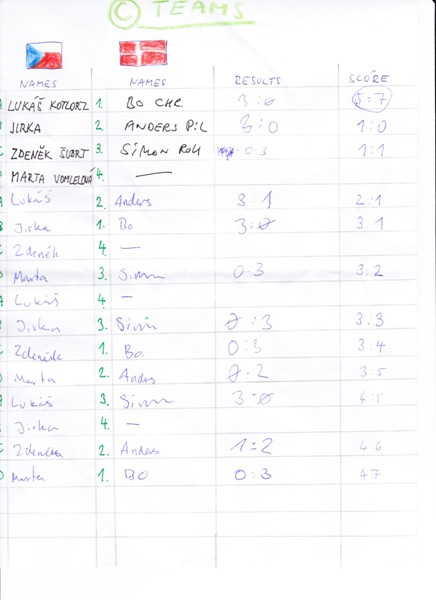 © TEAMS
NAMES NAMES RESULTS SCORE
LUKÁŠ 1. BO CHR. 3:0 5:7
JIRKA 2. ANDERS PIL 3:0 1:0
ZDENĚK 3. SIMON 0:3 1:1
MARTA VOMLELOVÁ 4. —
Lukáš 2. Anders 3:1 2:1
Jirka 1. Bo 3:0 3:1
Zdeněk 4. —
Marta 3. Simon 0:3 3:2
Lukáš 4 —
Jirka 3. Simon :3 3:3
Zdeněk 1. Bo 0:3 3:4
Marta 2. Anders 3:5
Lukáš 3. Simon 3:0 4:5
Jirka 4. —
Zdeněk 2. Anders 1:2 4:6
Marta 1. BO 0:3 4:7